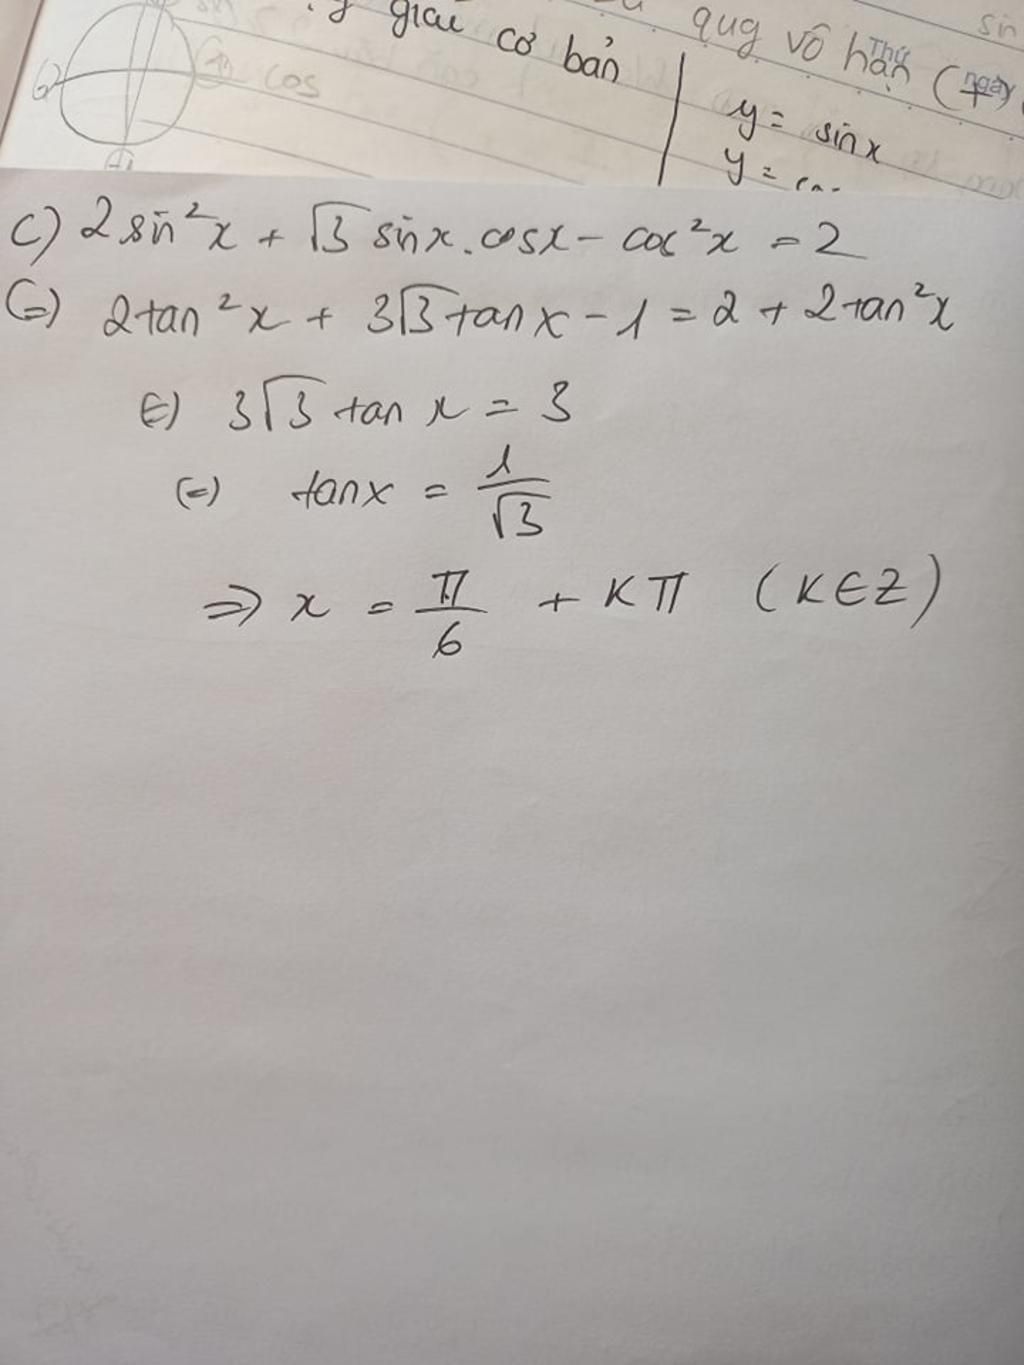 giải cơ bản
qug vô hạn (+)
Thứ
ngày
sin
cos
y = sin x
y =
c) 2 sin²x + √3 sin x . cos x - cos²x = 2
(=) 2 tan²x + 3√3 tan x - 1 = 2 + 2 tan²x
(=) 3√3 tan x = 3
(=) tan x = 1/√3
=> x = π/6 + Kπ (K∈Z)